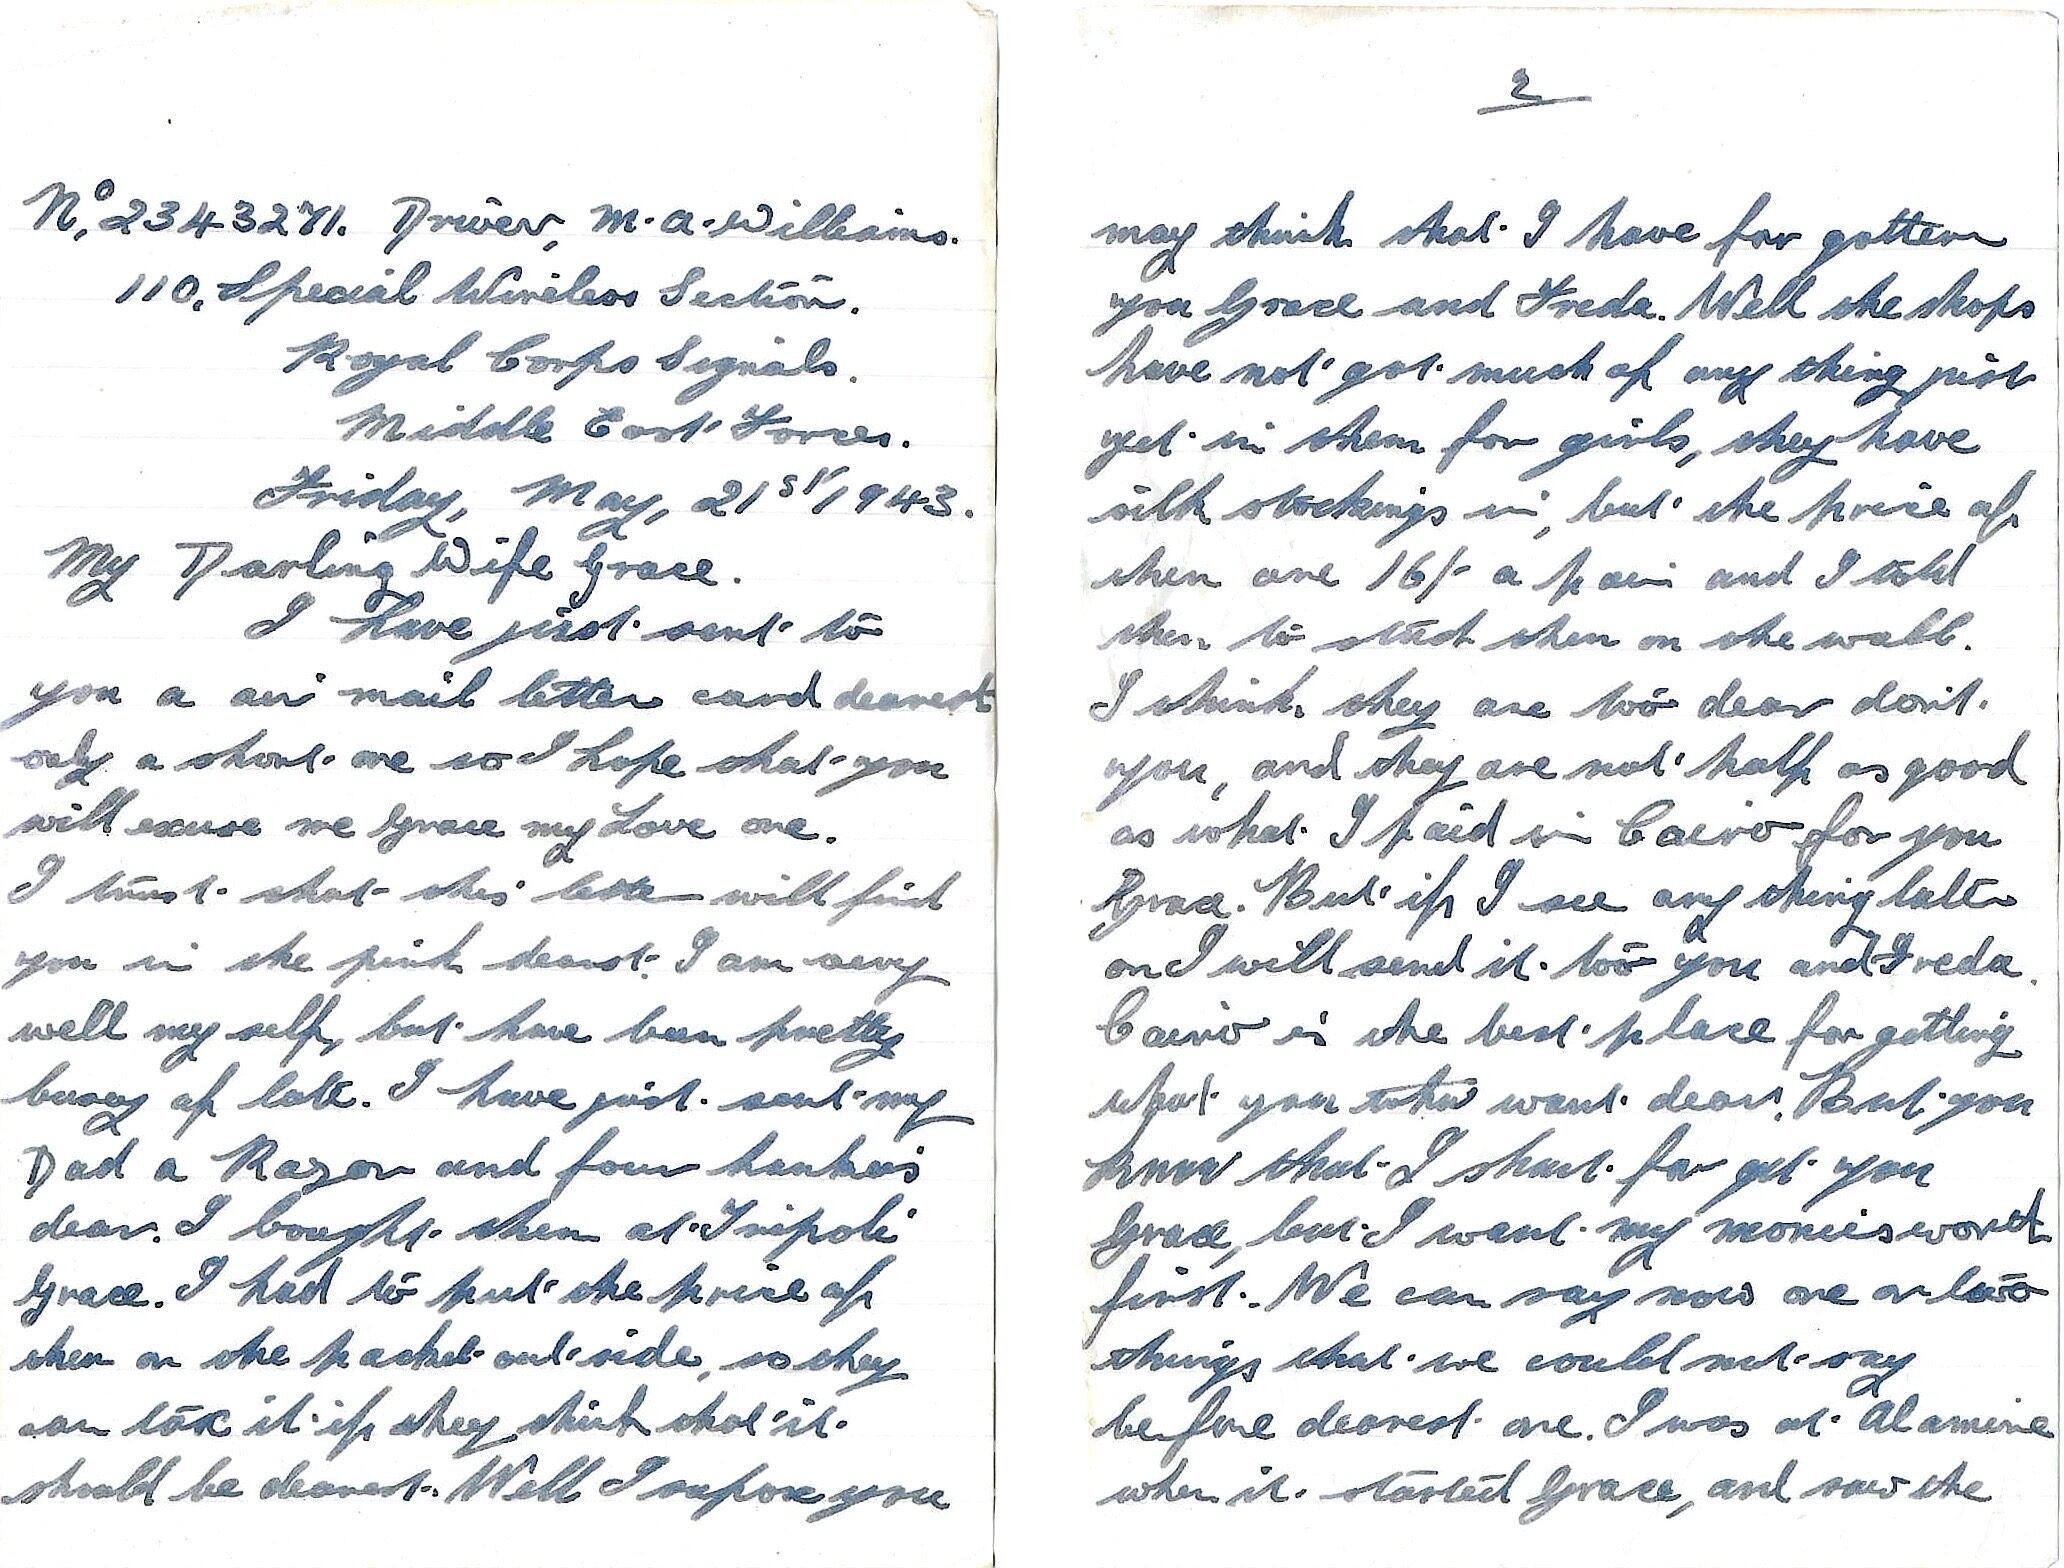 No. 2343271. Driver, M. A. Williams.
110, Special Wireless Section.
Royal Corps Signals.
Middle East Forces.
Friday, May, 21st/1943.
My Darling Wife Grace.
I have just sent to
you a air mail letter card dearest
only a short one so I hope that you
will excuse me Grace my Love one.
I trust that this letter will find
you in the pink dearest. I am very
well my self, but have been pretty
busey of late. I have just sent my
Dad a Razor and four hankeis
dear. I bought them at Tripoli
Grace. I had to put the price of
them on the packet out side, so they
can tax it if they think that it
should be dearest. Well I supose you
2
may think that I have for gotten
you Grace and Freda. Well the shops
have not got much of any thing just
yet in them for girls, they have
silk stockings in, but the price of
them are 16/- a pair and I told
them to stick them on the wall.
I think they are too dear don't
you, and they are not half as good
as what I paid in Cairo for you
Grace. But if I see any thing later
on I will send it too you and Freda.
Cairo is the best place for getting
what you want dear. But you
know that I shant for get you
Grace, but I want my monies worth
first. We can say now one or two
things that we could not say
be fore dearest one. I was at Alameine
when it started Grace, and saw the